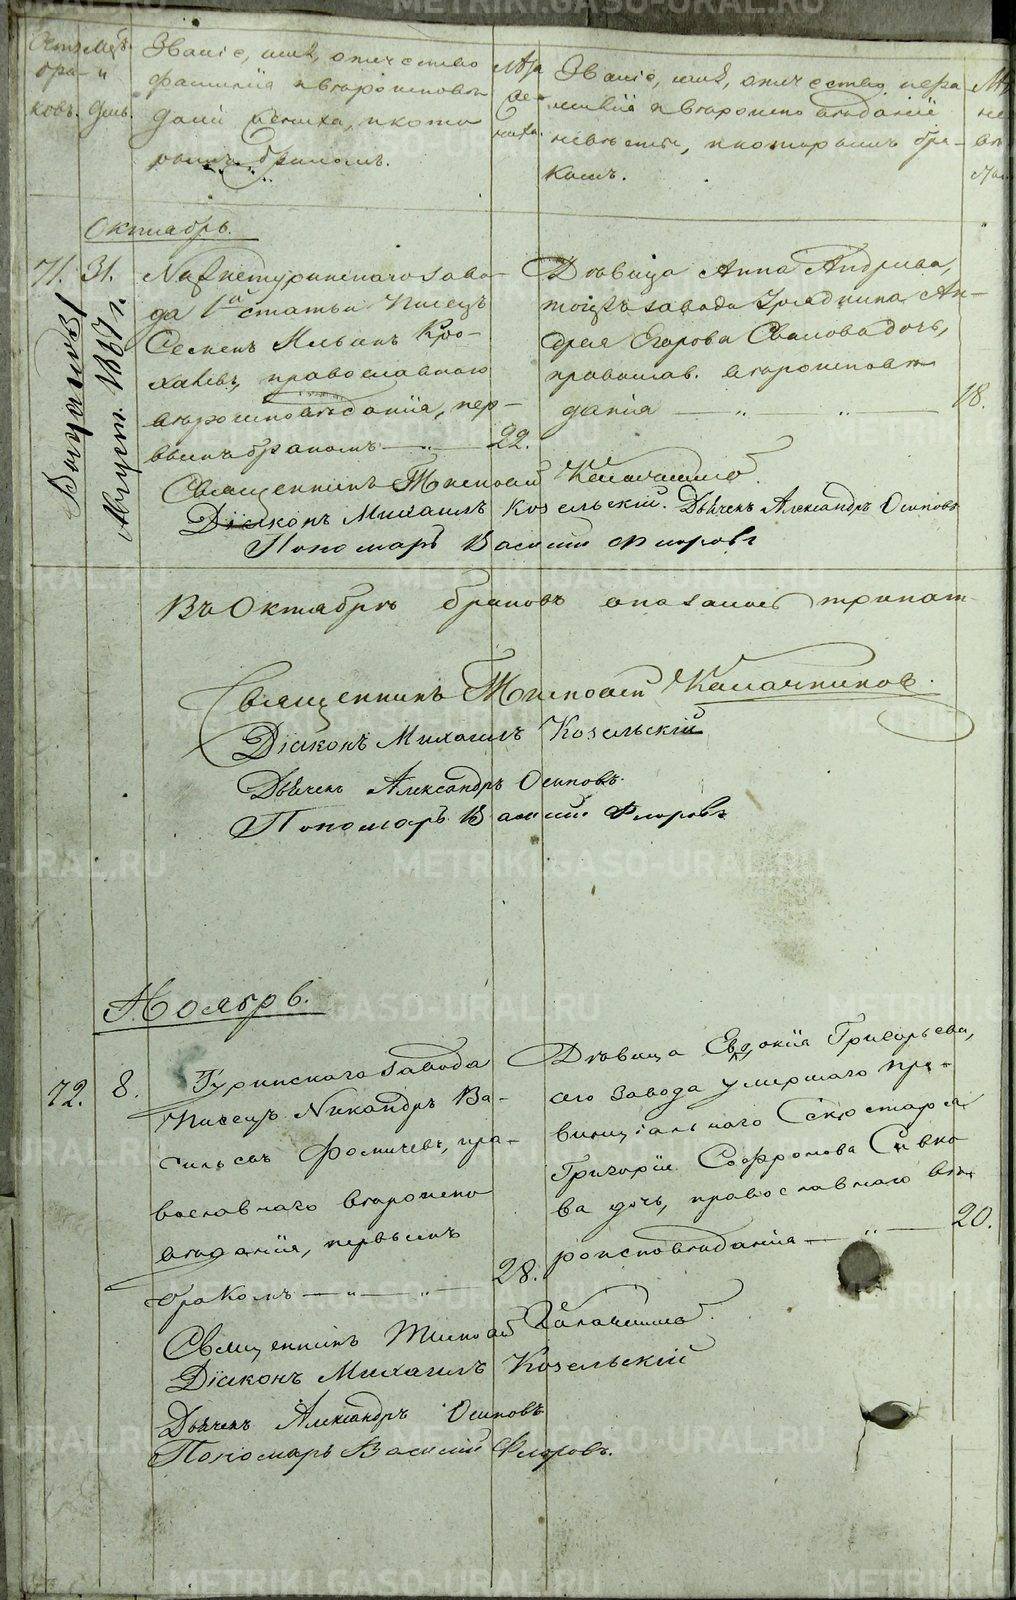 Счетъ бра-ковъ.
Мцъ и день.
Званіе, имя, отчество
фамилія и вѣроисповѣ
даніе жениха, и кото
рымъ бракомъ.
Званіе, имя, отчество, фами
лія и вѣроисповѣданіе
невѣсты, и которымъ бра-
комъ.
Октябрь.
71. 31.
Нижнетуринскаго заво-
да 1й статьи писецъ
Семенъ Ильинъ
православнаго
вѣроисповѣданія, пер-
вымъ бракомъ — „ — 22.
Дѣвица Анна Андреева,
тогожъ завода Урядника Ан-
дрея Егорова дочь,
православ. вѣроисповѣ
данія — „ „ — 18.
Август. 1867 г.
Священникъ Тимофей Калачниковъ
Діаконъ Михаилъ Козельскій. Дьячекъ Александръ Осиповъ
Пономарь Василій Флоровъ
Въ Октябрѣ браковъ оказалось
Священникъ Тимофей Калачниковъ.
Діаконъ Михаилъ Козельскій
Дьячекъ Александръ Осиповъ.
Пономарь Василій Флоровъ
Ноябрь.
72. 8.
Туринскаго завода
писецъ Никандръ Ва-
сильевъ Фомичевъ, пра-
вославнаго вѣроиспо
вѣданія, первымъ
бракомъ — „ — „ — 28.
Дѣвица Евдокія Григорьева,
сего завода умершаго про-
винціальнаго Секретаря
Григорія Софронова Сивко
ва дочь, православнаго вѣ
роисповѣданія — „ — 20.
Священникъ Тимофей Калачниковъ.
Діаконъ Михаилъ Козельскій
Дьячекъ Александръ Осиповъ
Пономарь Василій Флоровъ.
METRIKI.GASO-URAL.RU